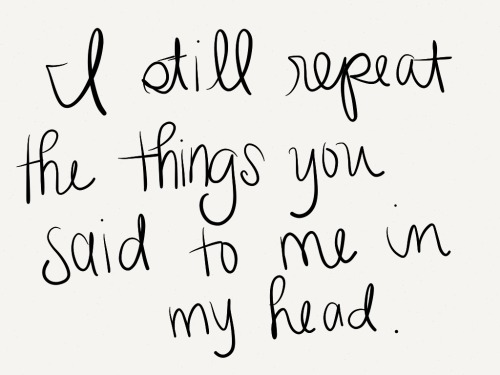 I still repeat
the things you
said to me in
my head.